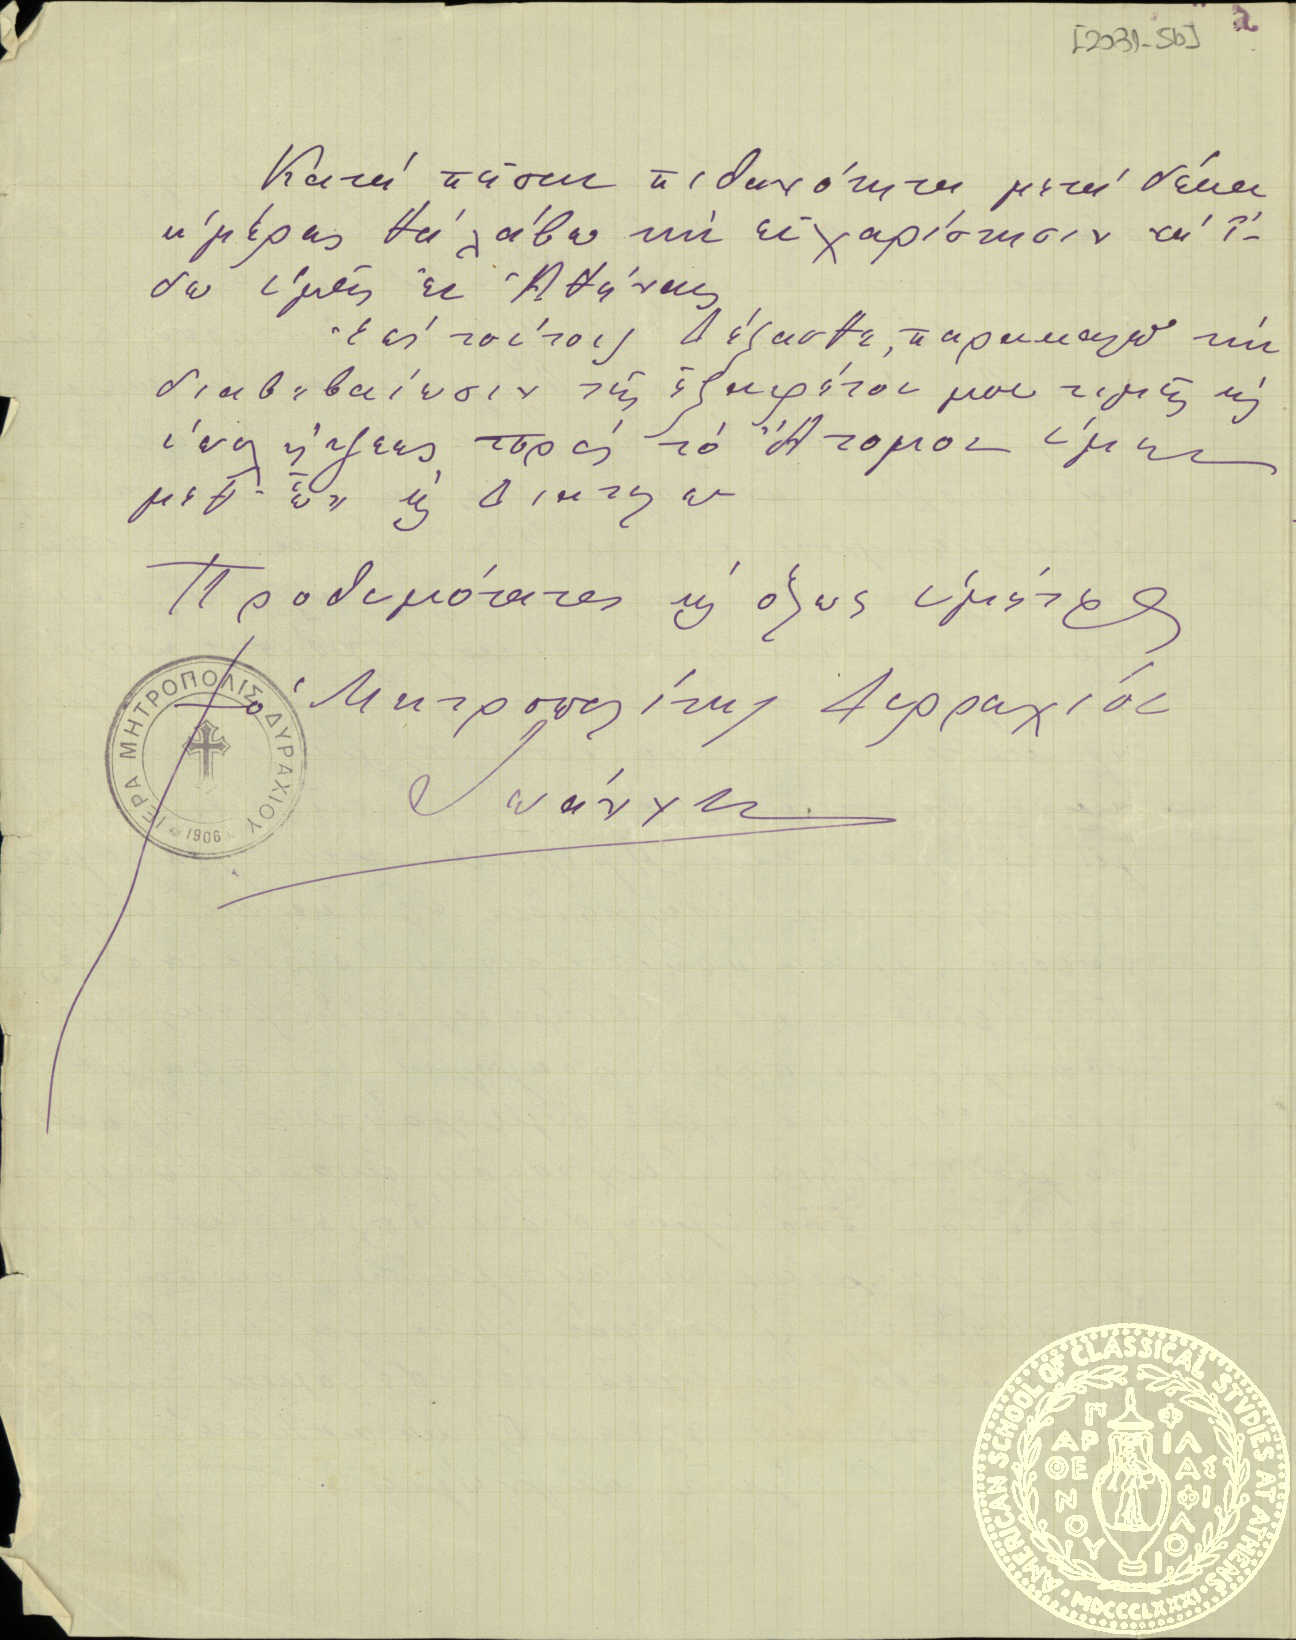 [2031-5b]
Κατά πᾶσαν πιθανότητα μετά δέκα
ἡμέρας θά λάβω τήν εὐχαρίστησιν νά ἴ-
δω ὑμᾶς ἐν Ἀθήναις
Ἐπί τούτοις δέξασθε, παρακαλῶ τήν
διαβεβαίωσιν τῆς ἐξαιρέτου μου τιμῆς κ
ὑπολήψεως πρός τό Ἄτομον ὑμῶν
μεθ' ἧς κ διατελῶ
Προθυμότατος κ ὅλως ὑμέτερος
ὁ Μητροπολίτης Δυρραχίου
Ἰωάννης
ΙΕΡΑ ΜΗΤΡΟΠΟΛΙΣ ΔΥΡΑΧΙΟΥ
1906
AMERICAN SCHOOL OF CLASSICAL STVDIES AT ATHENS
ΠΑΡΘΕΝΟΥ ΦΙΛΑΣ ΦΙΛΟΙ
MDCCCLXXXI